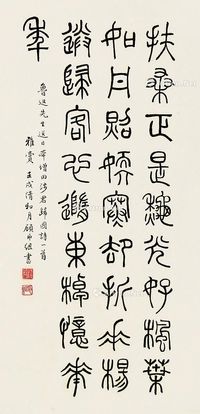 扶桑正是龝光好楓葉
如丹照嫩寒却折垂楊
送歸客心隨東棹憶華
年
魯迅先生送日本增田涉君歸國詩一首
雅賞 壬戌清和月顧書